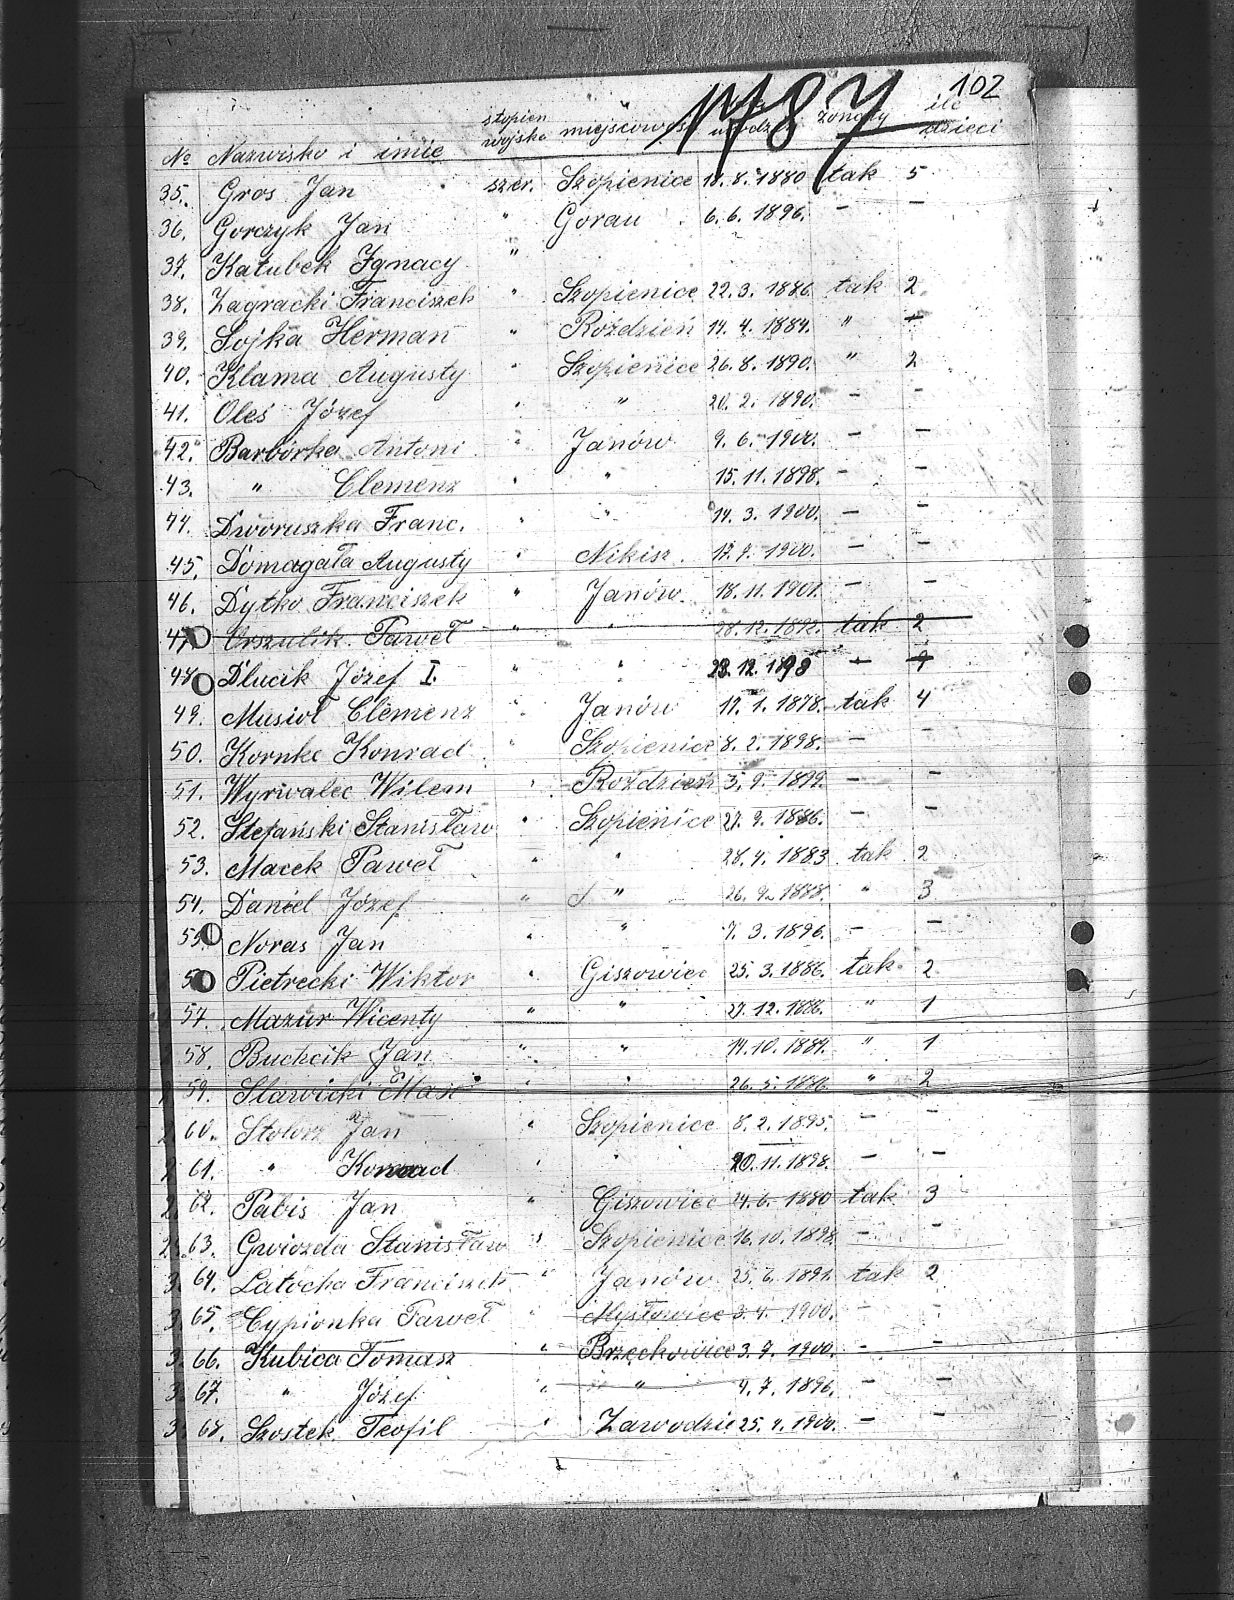 102
1787
№ Nazwisko i imię stopień wojsko miejscowość urodz. żonaty ile dzieci
35. Gros Jan szer. Szopienice 18.8.1880 tak 5
36. Gorczyk Jan " Gorau 6.6.1896. - -
37. Katubek Ignacy "
38. Zagracki Franciszek " Szopienice 22.3.1886. tak 2
39. Sojka Herman " Roździeń 14.4.1884. "
40. Klama Augusty " Szopienice 26.8.1890. " 2
41. Oleś Józef " " 20.2.1890. - -
42. Barbórka Antoni " Janów 9.6.1900. - -
43. " Clemenz " " 15.11.1898. - -
44. Dworuszka Franc. " " 14.3.1900. - -
45. Domagała Augusty " Nikisz. 1900. - -
46. Dytko Franciszek " Janów 18.11.1901. - -
47. Urszulik Paweł " " 28.12.1892. tak 2
48. Dlucik Józef I. " " 23.12.1898 -
49. Musioł Clemenz " Janów 17.1.1878. tak 4
50. Kornke Konrad " Szopienice 8.2.1898. - -
51. Wyrwalec Wilem " Roździeń 3.9.1899. - -
52. Stefański Stanisław " Szopienice 27.9.1886. - -
53. Macek Paweł " " 28.4.1883 tak 2
54. Daniel Józef " " 26.9.1888. " 3
55. Noras Jan " " 7.3.1896. - -
5 Pietrecki Wiktor " Giszowiec 25.3.1886. tak 2
57. Mazur Wicenty " " 27.12.1886. " 1
58. Buchcik Jan " " 14.10.1889. " 1
59. Slawicki Max " " 26.5.1886. " 2
60. Stolorz Jan " Szopienice 8.2.1895. - -
61. " Konrad " " 20.11.1898. - -
62. Pabis Jan " Giszowiec 24.6.1880 tak 3
63. Gwiozda Stanisław " Szopienice 16.10.1898. - -
64. Latocha Franciszek " Janów 25.6.1891. tak 2
65. Cypionka Paweł " Mysłowice 3.4.1900. - -
66. Kubica Tomasz " Brzęckowice 3.9.1900. - -
67. " Józef " " 4.7.1896. - -
68. Szostek Teofil " Zawodzie 25.4.1900. - -